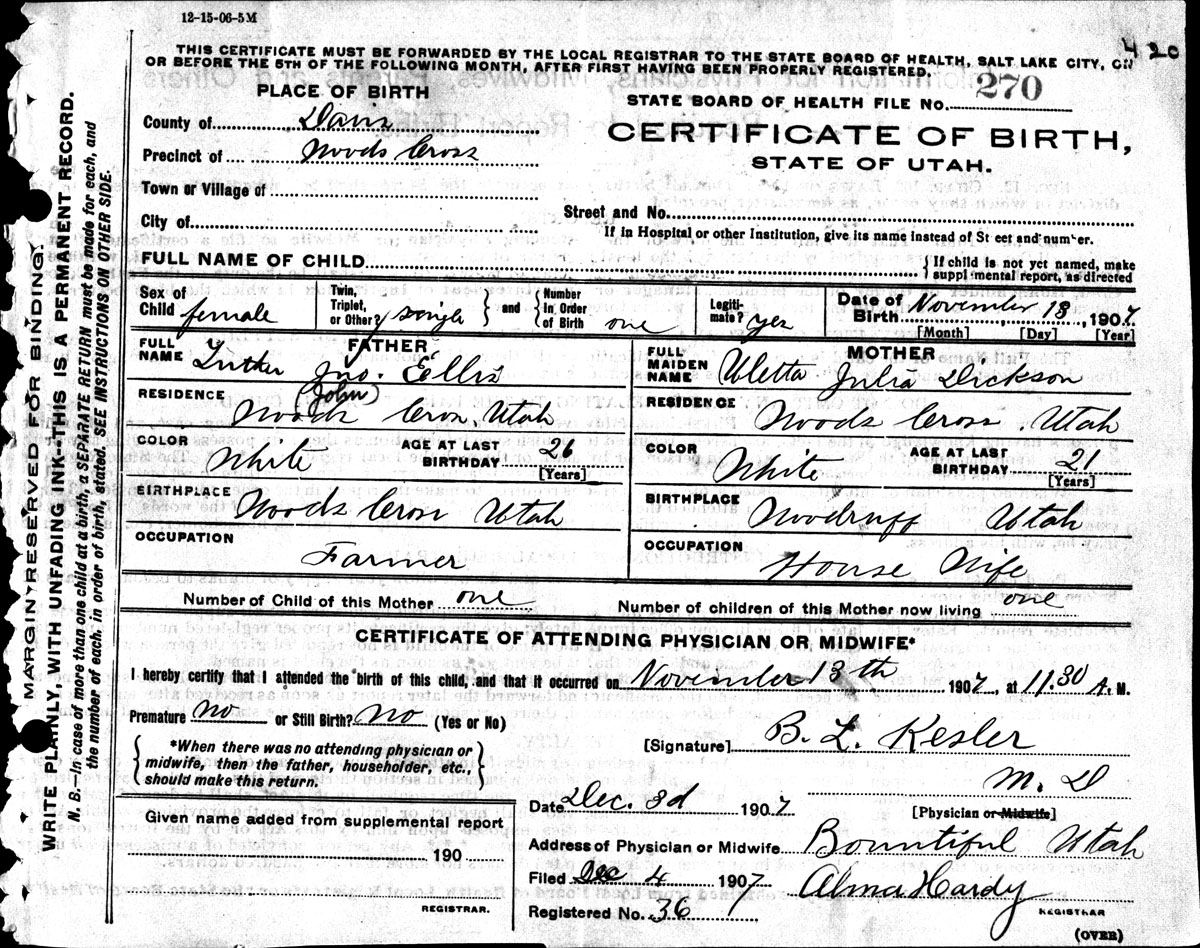 12-15-06-5M
420
THIS CERTIFICATE MUST BE FORWARDED BY THE LOCAL REGISTRAR TO THE STATE BOARD OF HEALTH, SALT LAKE CITY, ON
OR BEFORE THE 5TH OF THE FOLLOWING MONTH, AFTER FIRST HAVING BEEN PROPERLY REGISTERED.
PLACE OF BIRTH
STATE BOARD OF HEALTH FILE NO. 270
County of Davis
CERTIFICATE OF BIRTH,
Precinct of Woods Cross
STATE OF UTAH.
Town or Village of
City of
Street and No.
If in Hospital or other Institution, give its name instead of St eet and number.
FULL NAME OF CHILD
{If child is not yet named, make
suppl mental report, as directed
Sex of Child female
Twin, Triplet, or Other? single } and { Number In Order of Birth one
Legiti-mate? yes
Date of Birth November 13, 1907.
[Month] [Day] [Year]
FATHER
FULL NAME Luther Jno. Ellis
(John)
RESIDENCE Woods Cross, Utah
COLOR White
AGE AT LAST BIRTHDAY 26
[Years]
BIRTHPLACE Woods Cross Utah
OCCUPATION
Farmer
MOTHER
FULL MAIDEN NAME Uletta Julia Dickson
RESIDENCE Woods Cross, Utah
COLOR White
AGE AT LAST BIRTHDAY 21
[Years]
BIRTHPLACE Woodruff Utah
OCCUPATION
House Wife
Number of Child of this Mother one
Number of children of this Mother now living one
CERTIFICATE OF ATTENDING PHYSICIAN OR MIDWIFE*
I hereby certify that I attended the birth of this child, and that it occurred on November 13th 1907, at 11.30 A. M.
Premature no or Still Birth? no (Yes or No)
{ *When there was no attending physician or
midwife, then the father, householder, etc.,
should make this return. }
[Signature] B. L. Kesler
M. D
[Physician or Midwife]
Given name added from supplemental report
190
REGISTRAR.
Date Dec. 3d 1907
Address of Physician or Midwife Bountiful Utah
Filed Dec 4 1907 Alma Hardy
Registered No. 36
REGISTRAR
(OVER)
MARGIN RESERVED FOR BINDING.
WRITE PLAINLY, WITH UNFADING INK--THIS IS A PERMANENT RECORD.
N. B.—In case of more than one child at a birth, a SEPARATE RETURN must be made for each, and
the number of each, in order of birth, stated. SEE INSTRUCTIONS ON OTHER SIDE.